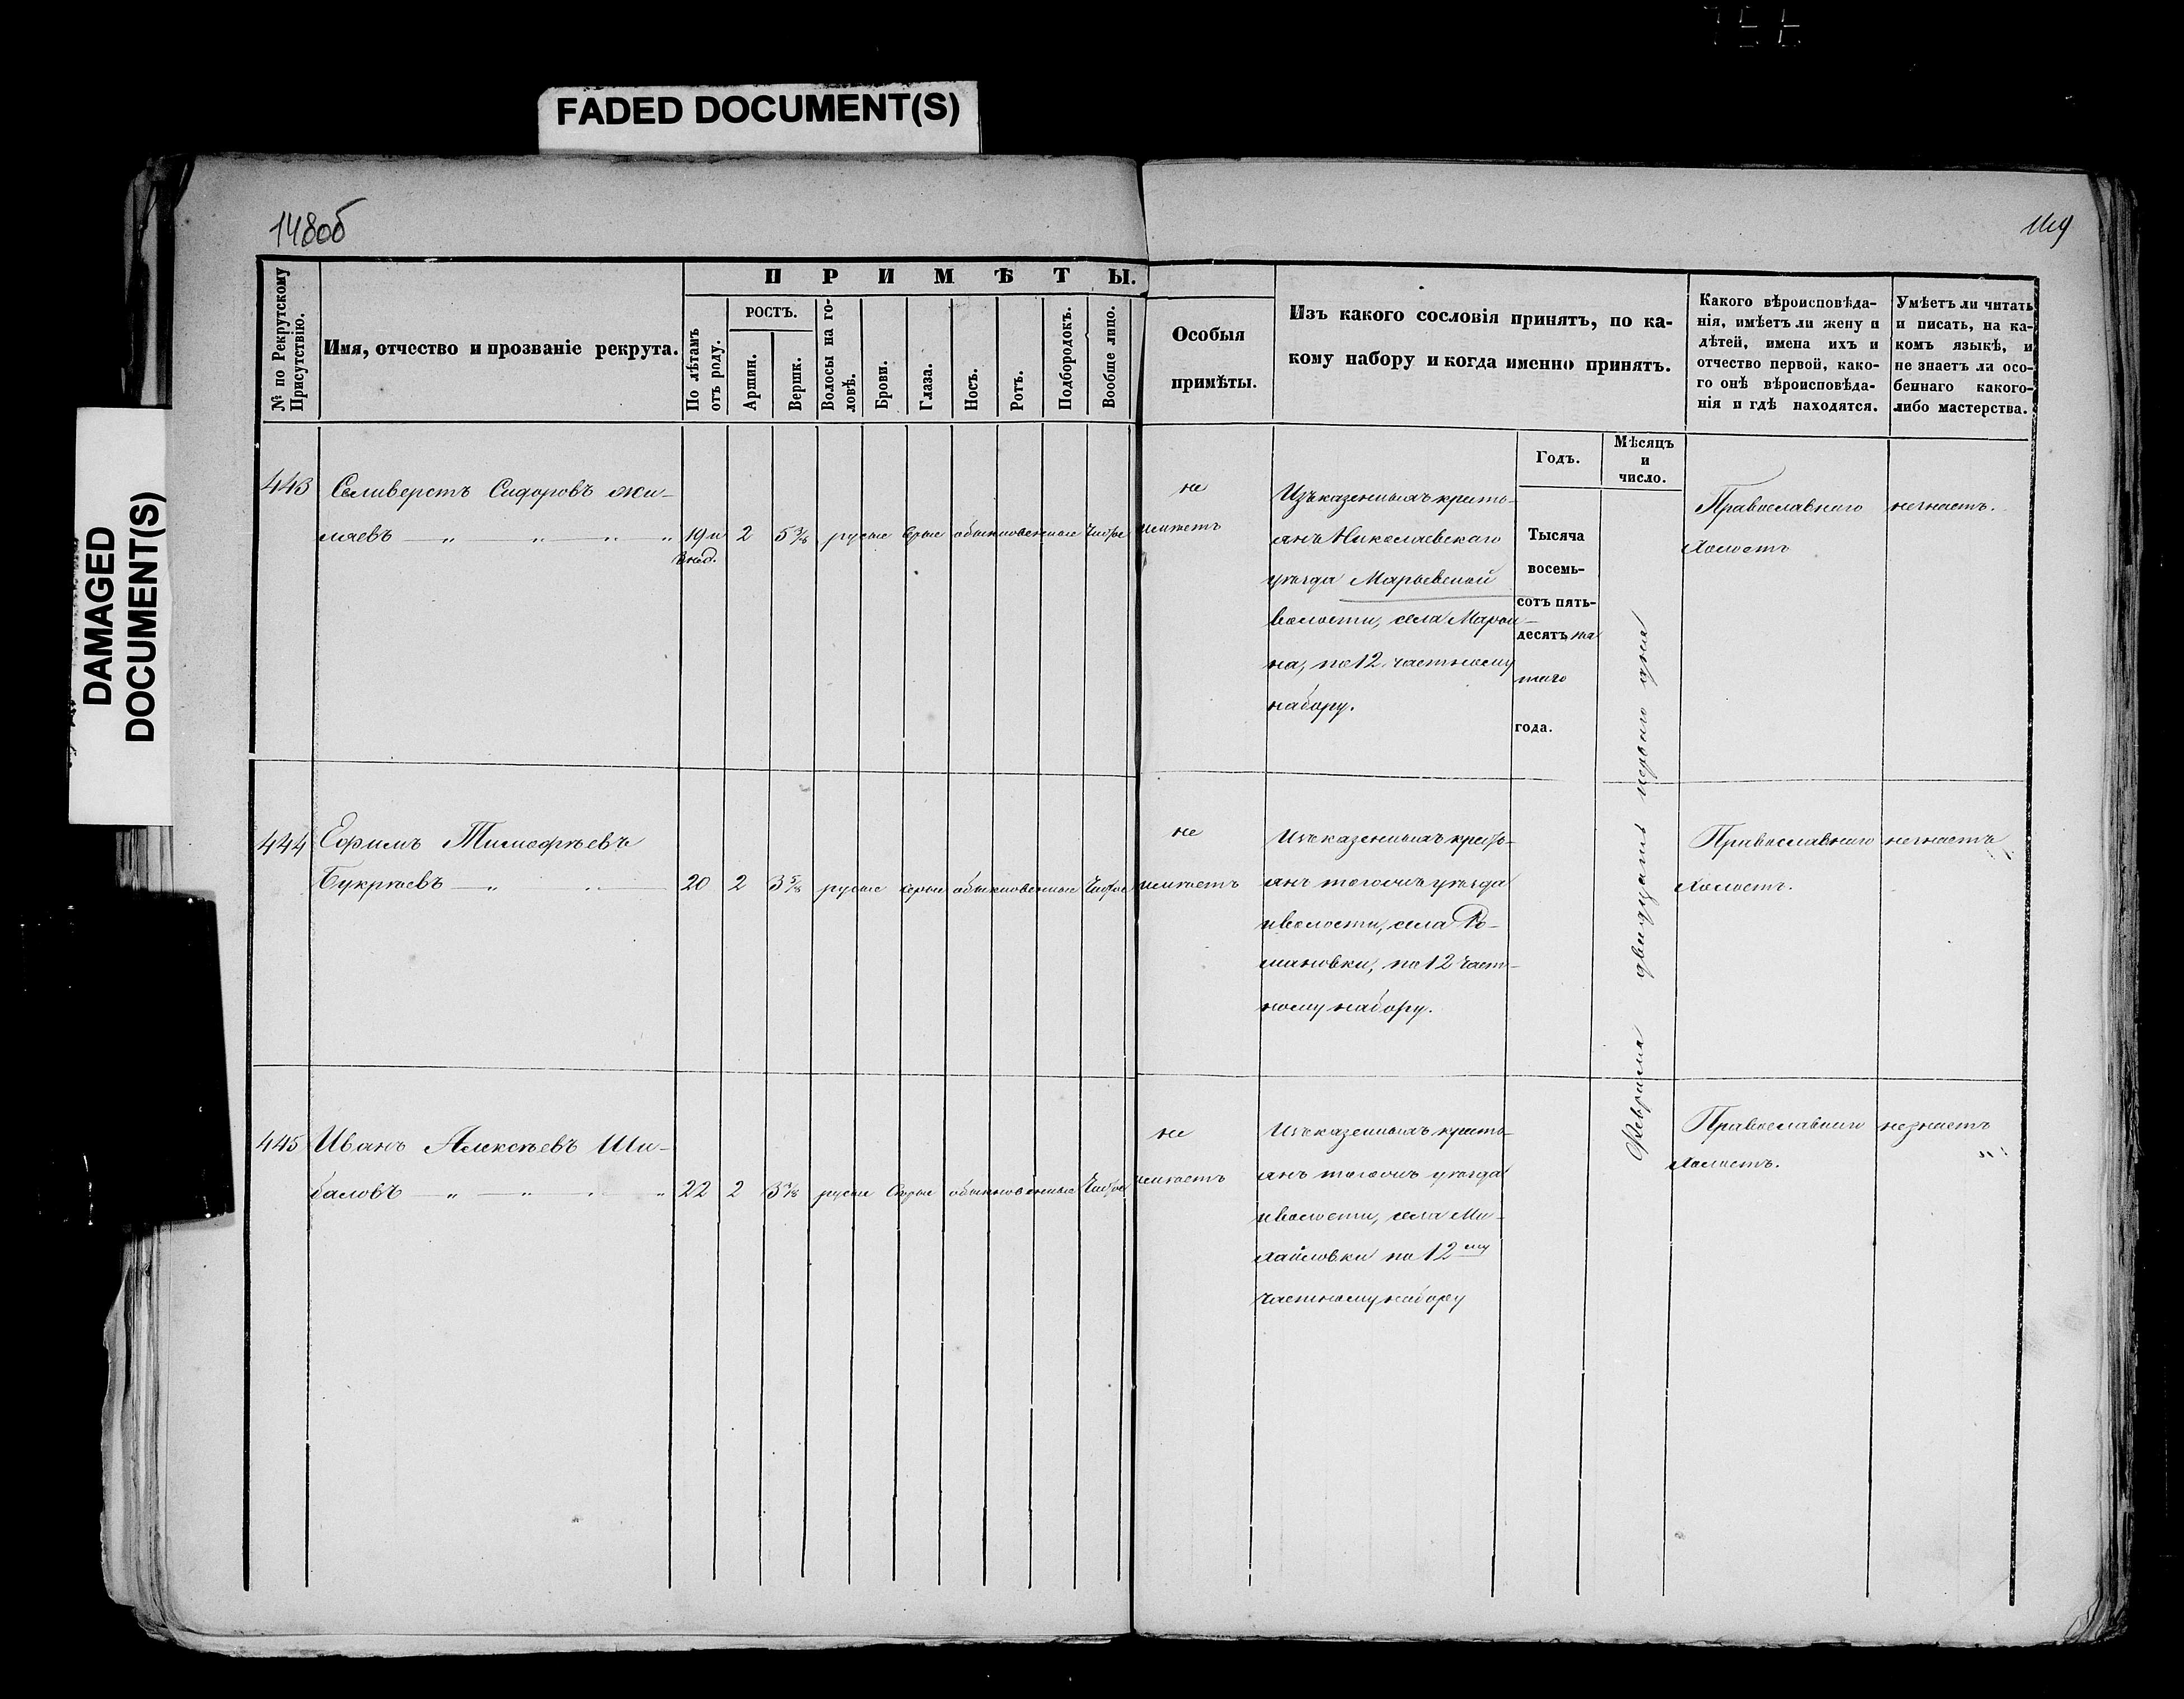 FADED DOCUMENT(S)
DAMAGED
DOCUMENT(S)
148об
149
№ по Рекрутскому
Присутствію.
Имя, отчество и прозваніе рекрута.
ПРИМѢТЫ.
По лѣтамъ
отъ роду.
РОСТЪ.
Аршин.
Вершк.
Волосы на го-
ловѣ.
Брови.
Глаза.
Носъ.
Ротъ.
Подбородокъ.
Вообще лицо.
Особыя
примѣты.
Изъ какого сословія принятъ, по ка-
кому набору и когда именно принятъ.
Какого вѣроисповѣда-
нія, имѣетъ ли жену и
дѣтей, имена ихъ и
отчество первой, како-
го онѣ вѣроисповѣда-
нія и гдѣ находятся.
Умѣетъ ли читать
и писать, на ка-
комъ языкѣ, и
не знаетъ ли осо-
беннаго какого-
либо мастерства.
Годъ.
Мѣсяцъ
и
число.
443 Селиверстъ Сидоровъ
19 и 2 5 русые серые обыкновенные Чистое
не
имѣетъ
Изъ казенныхъ кресть-
янъ Николаевскаго
уѣзда Марьевской
волости, села Марьи-
на, по 12 частному
набору.
Тысяча
восемь-
сотъ пять-
десятъ пя
таго
года.
Февраля двадцать перваго дня
Православнаго
Холостъ
незнаетъ.
444 Ефимъ Тимофѣевъ
Букрѣевъ 20 2 3 5/8 русые серые обыкновенные Чистое
не
имѣетъ
Изъ казенныхъ кресть-
янъ тогожъ уѣзда
и волости, села Ро-
мановки, по 12 част-
ному набору.
Православнаго
Холостъ.
незнаетъ
445 Иванъ Алексѣевъ Ши-
баловъ 22 2 3 русые Серые обыкновенные Чистое
не
имѣетъ
Изъ казенныхъ кресть-
янъ тогожъ уѣзда
и волости, села Ми-
хайловки по 12му
частному набору
Православнаго
Холостъ.
незнаетъ